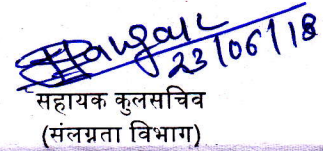 23/06/18
सहायक कुलसचिव
(संलग्नता विभाग)